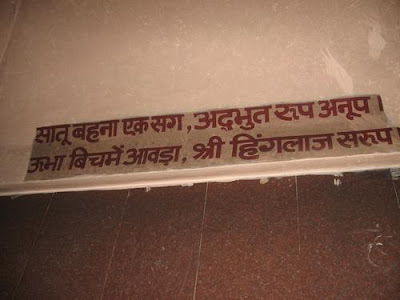 सातू बहना एक सग, अद्भुत रूप अनूप।
ऊभा बिचमें आवड़ा, श्री हिंगलाज सरुप।